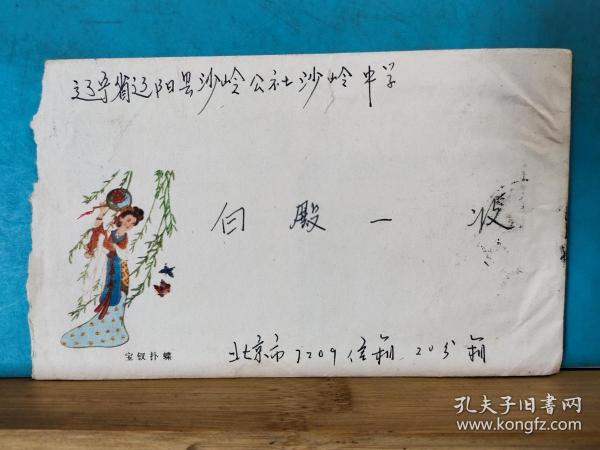 辽宁省辽阳县沙岭公社沙岭中学
白殿一 收
宝钗扑蝶
北京市7209信箱20分箱
孔夫子旧书网
www.kongfz.com